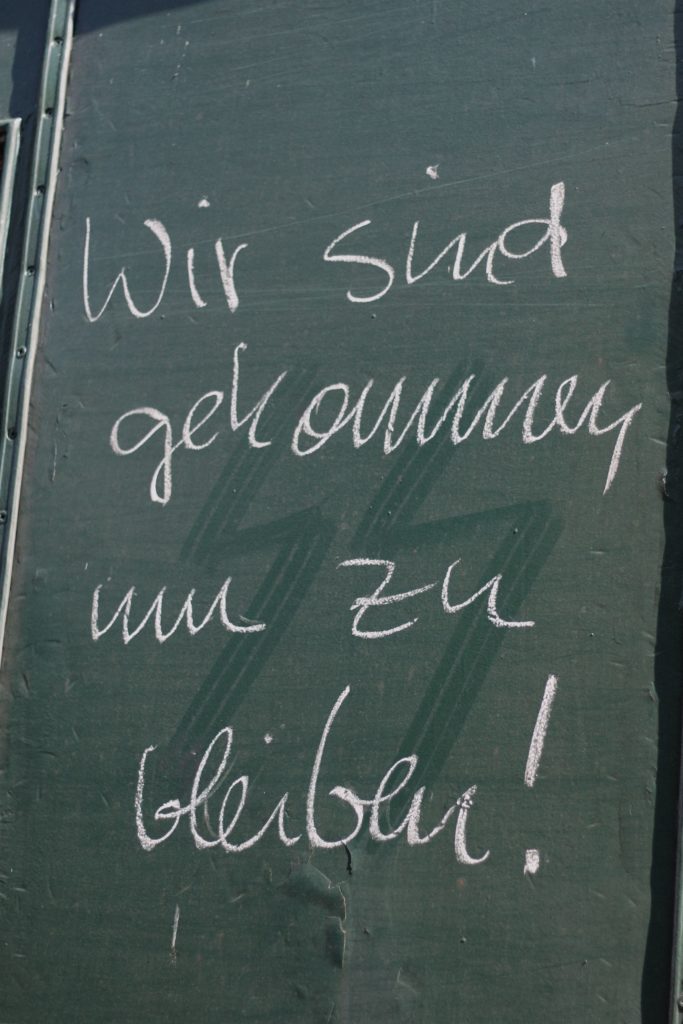 Wir sind
gekommen
um zu
bleiben!